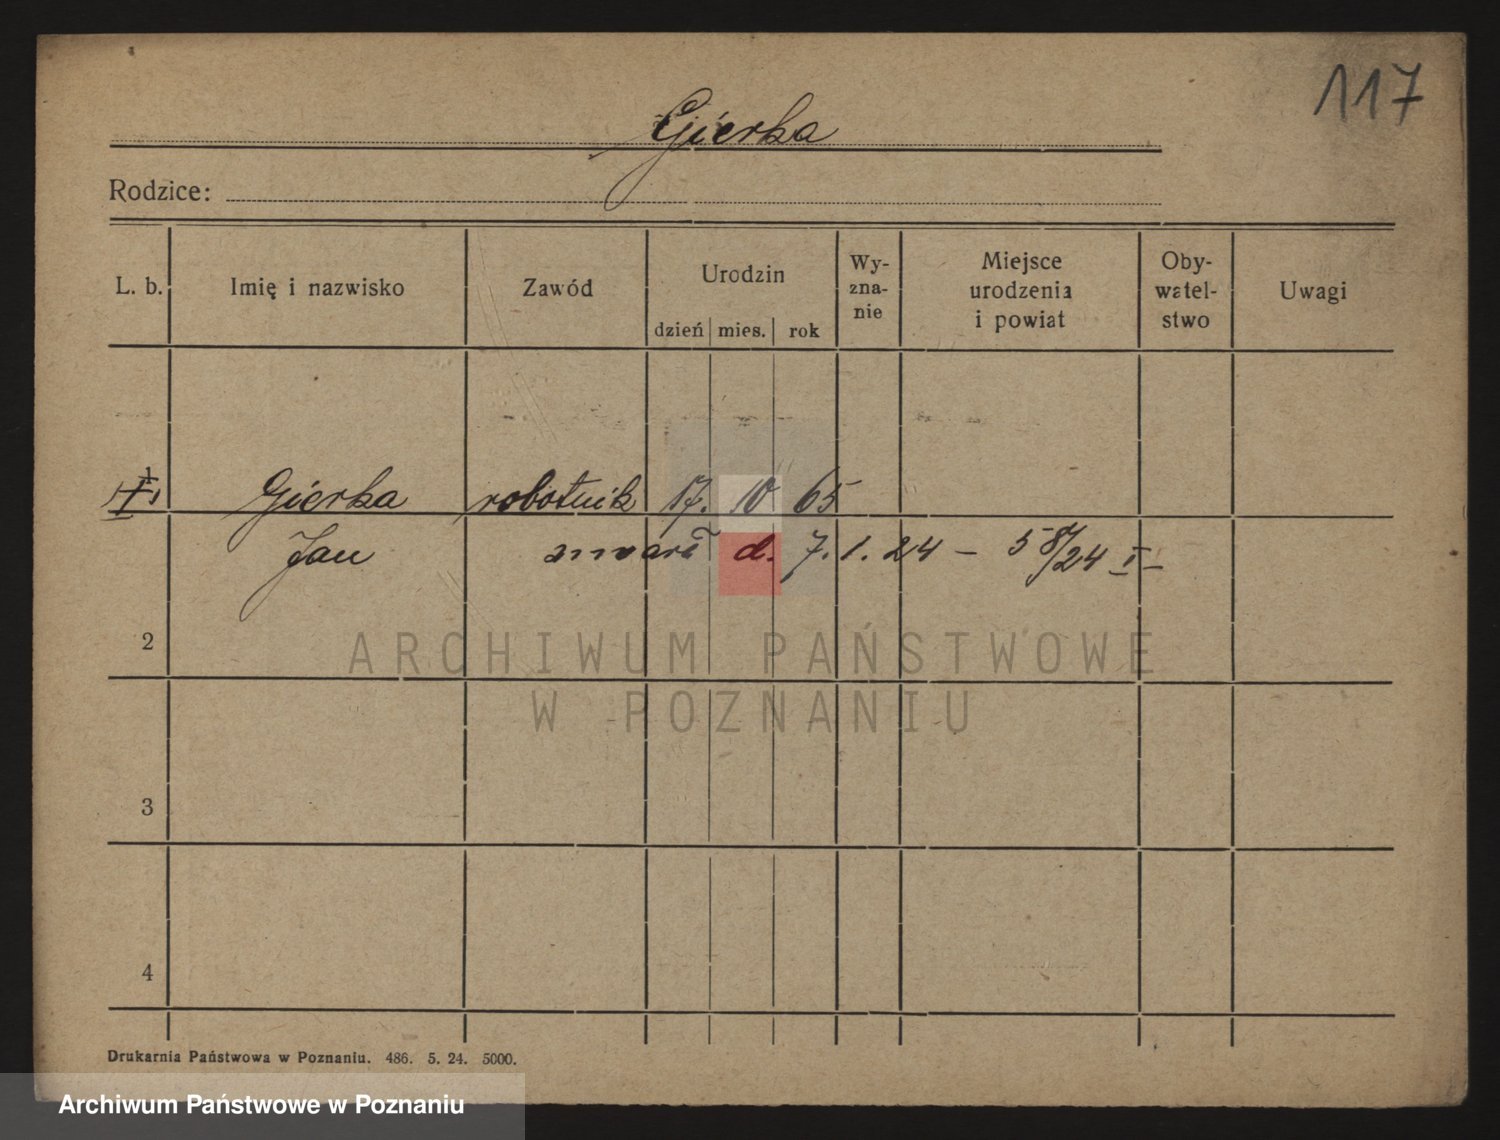 117
Gierka
Rodzice:
L. b. Imię i nazwisko Zawód Urodzin dzień mies. rok Wy-zna-nie Miejsce urodzenia i powiat Oby-watel-stwo Uwagi
1 Gierka robotnik 17. 10 65
Jan zmarł d. 7. 1. 24 – 58/24 I –
2
ARCHIWUM PAŃSTWOWE
W POZNANIU
3
4
Drukarnia Państwowa w Poznaniu. 486. 5. 24. 5000.
Archiwum Państwowe w Poznaniu